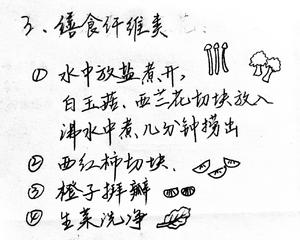 3、膳食纤维类
① 水中放盐煮开，
白玉菇、西兰花切块放入
沸水中煮几分钟捞出
② 西红柿切块、
③ 橙子拜瓣
④ 生菜洗净